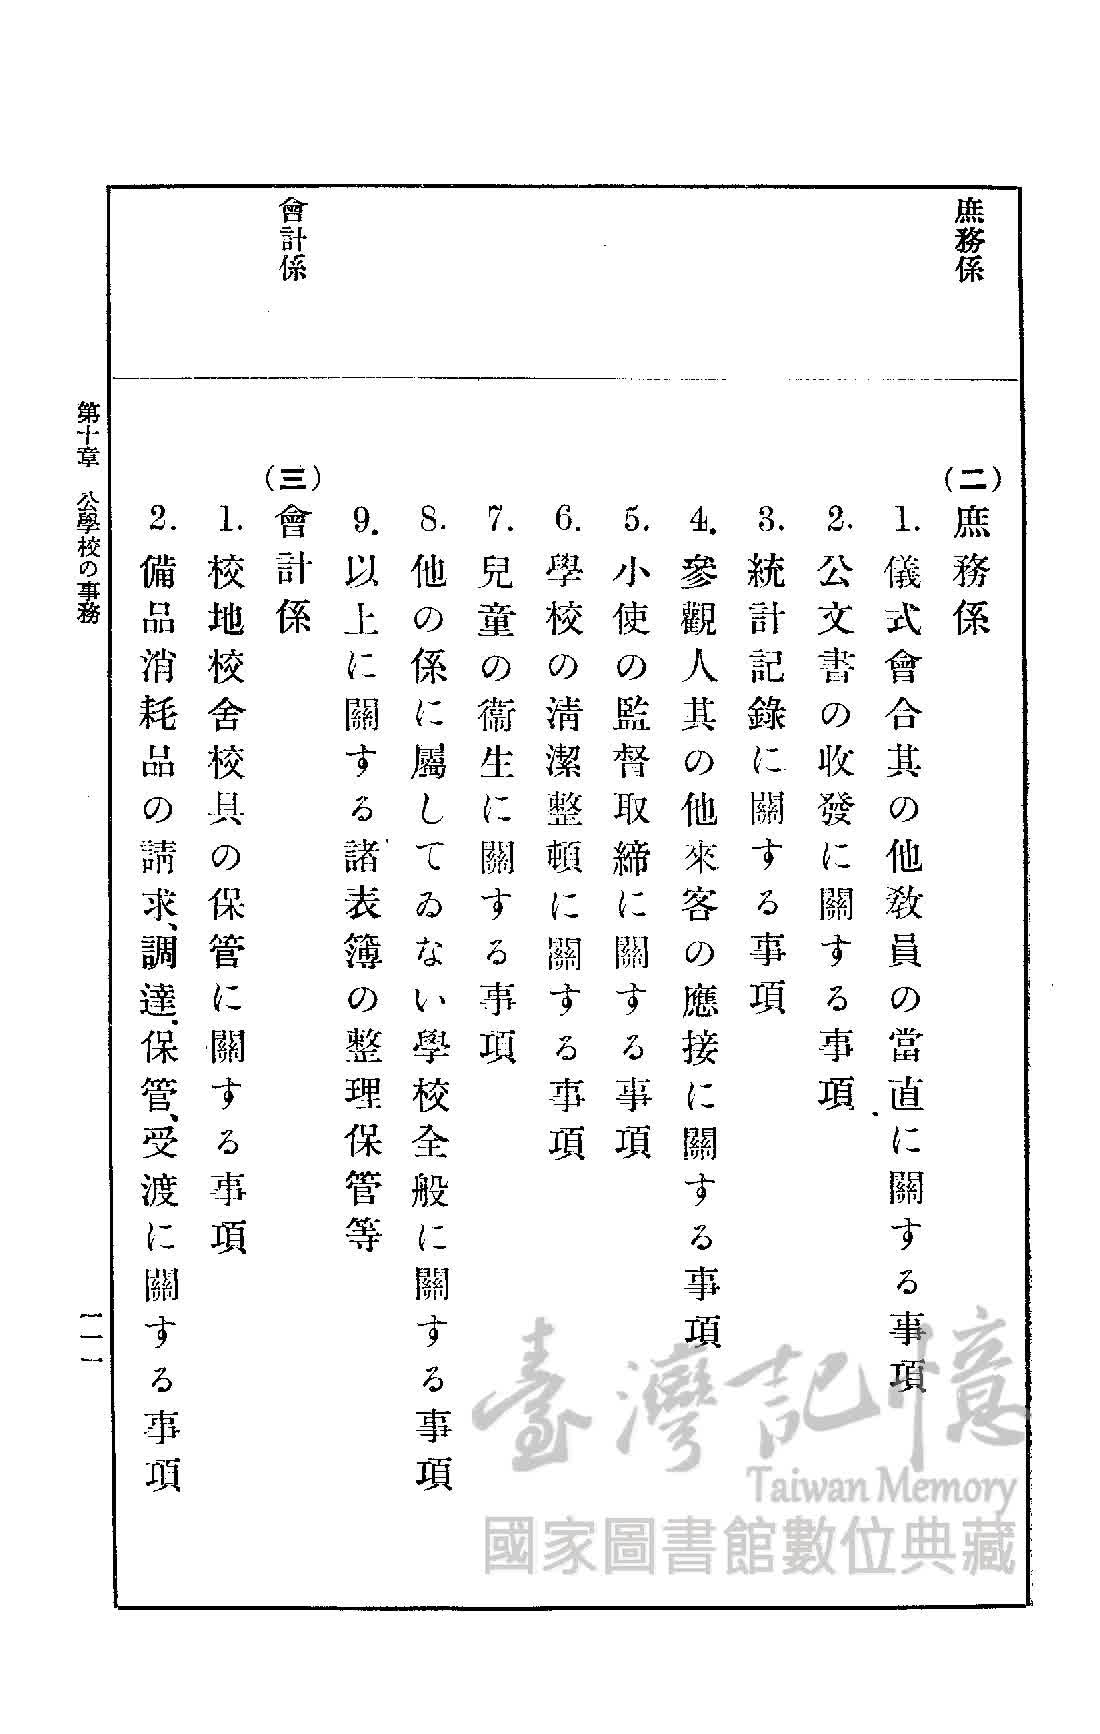 庶務係
(二)庶務係
1. 儀式會合其の他敎員の當直に關する事項
2. 公文書の收發に關する事項
3. 統計記錄に關する事項
4. 參觀人其の他來客の應接に關する事項
5. 小使の監督取締に關する事項
6. 學校の淸潔整頓に關する事項
7. 兒童の衞生に關する事項
8. 他の係に屬してゐない學校全般に關する事項
9. 以上に關する諸表簿の整理保管等
會計係
(三)會計係
1. 校地校舍校具の保管に關する事項
2. 備品消耗品の請求、調達、保管、受渡に關する事項
第十章 公學校の事務
一一一
臺灣記憶
Taiwan Memory
國家圖書館數位典藏